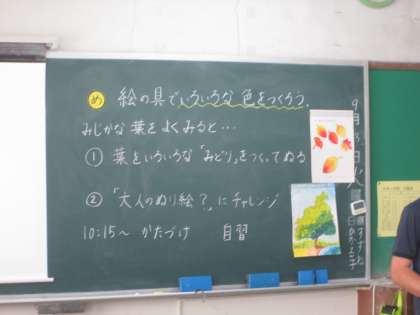 め 絵の具でいろいろな色をつくろう。
みじかな葉をよくみると…
① 葉をいろいろな「みどり」をつくってぬる
② 「大人のぬり絵?」にチャレンジ
10:15～ かたづけ 自習
9月
日